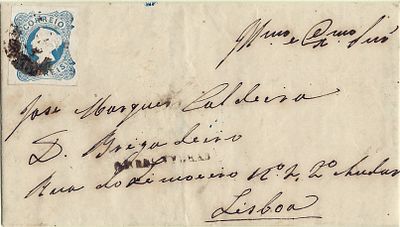 CORREIO
REIS
Illmo e Exmo Snr
Jose Marques Caldeira
D. Brigadeiro
Rua do Limoeiro Nº 2, 2º Andar
Lisboa